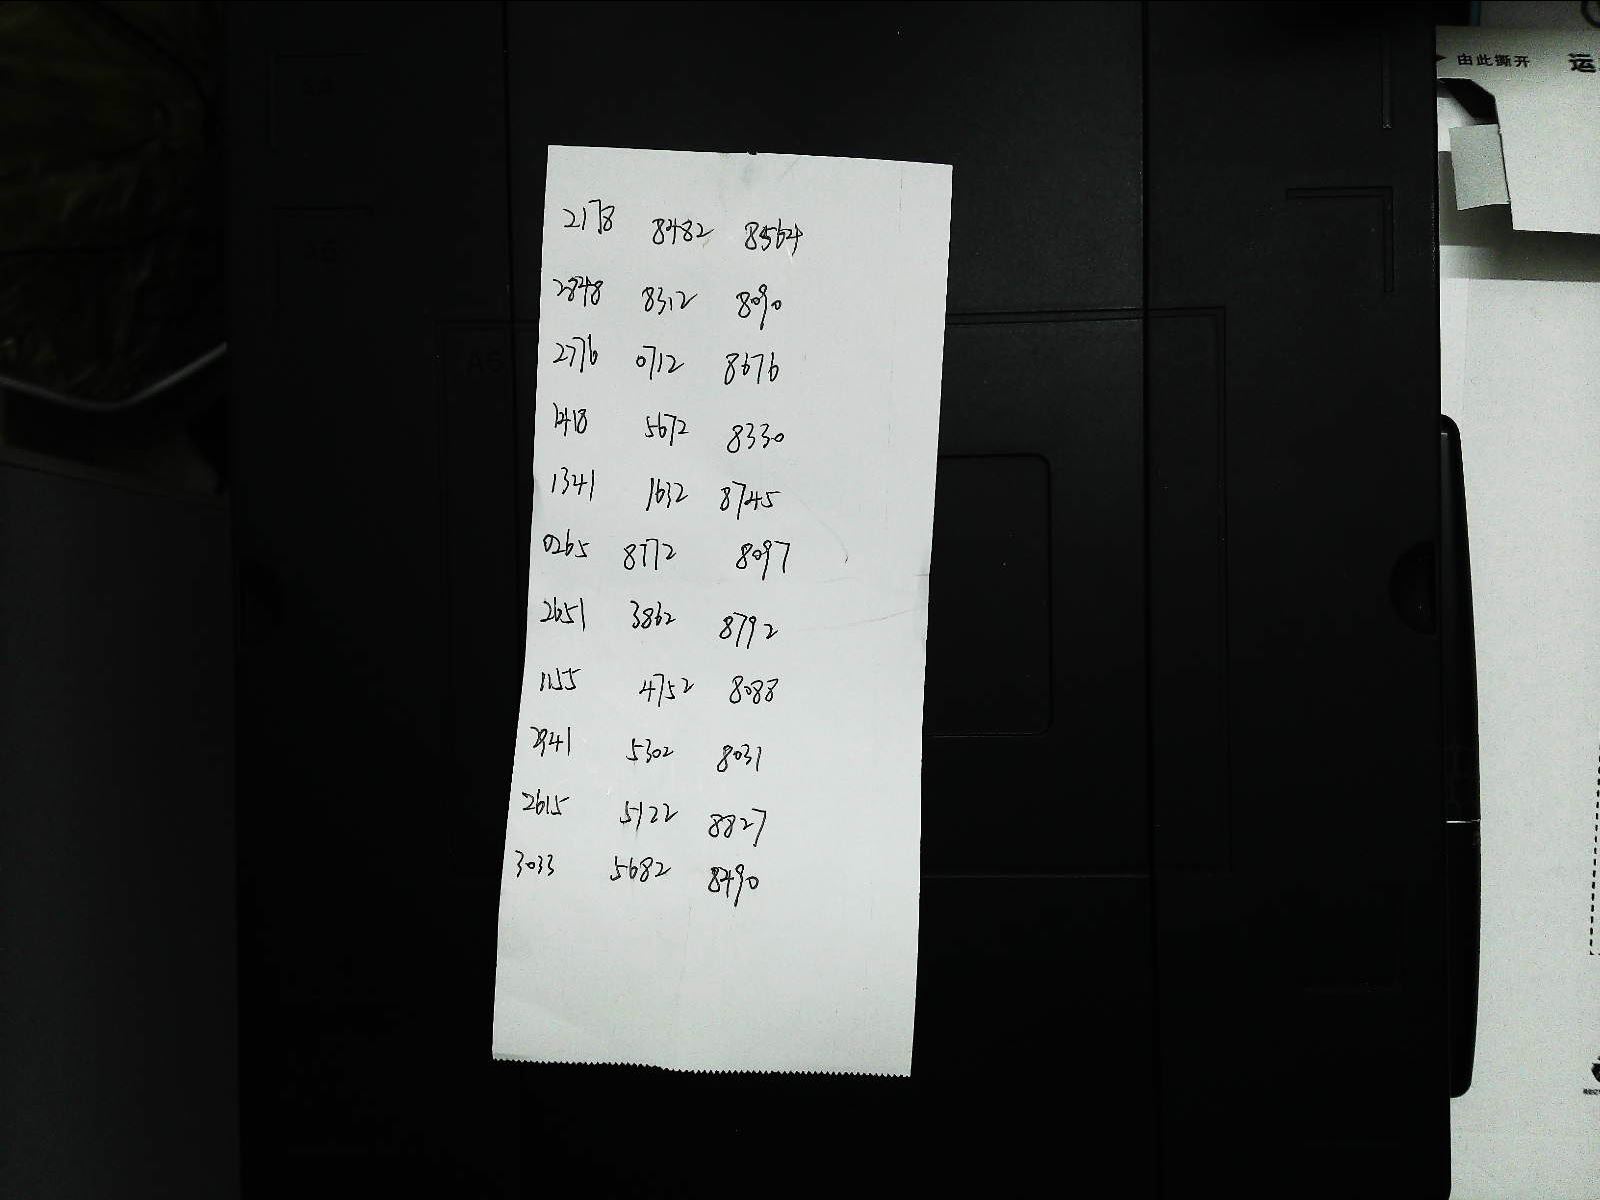 由此撕开 运
2178 8482 8564
2848 8312 8090
2776 0712 8676
1418 5672 8330
1341 1632 8745
0265 8772 8097
2651 3862 8792
1155 4752 8088
2941 5302 8031
2615 5122 8827
3033 5682 8490